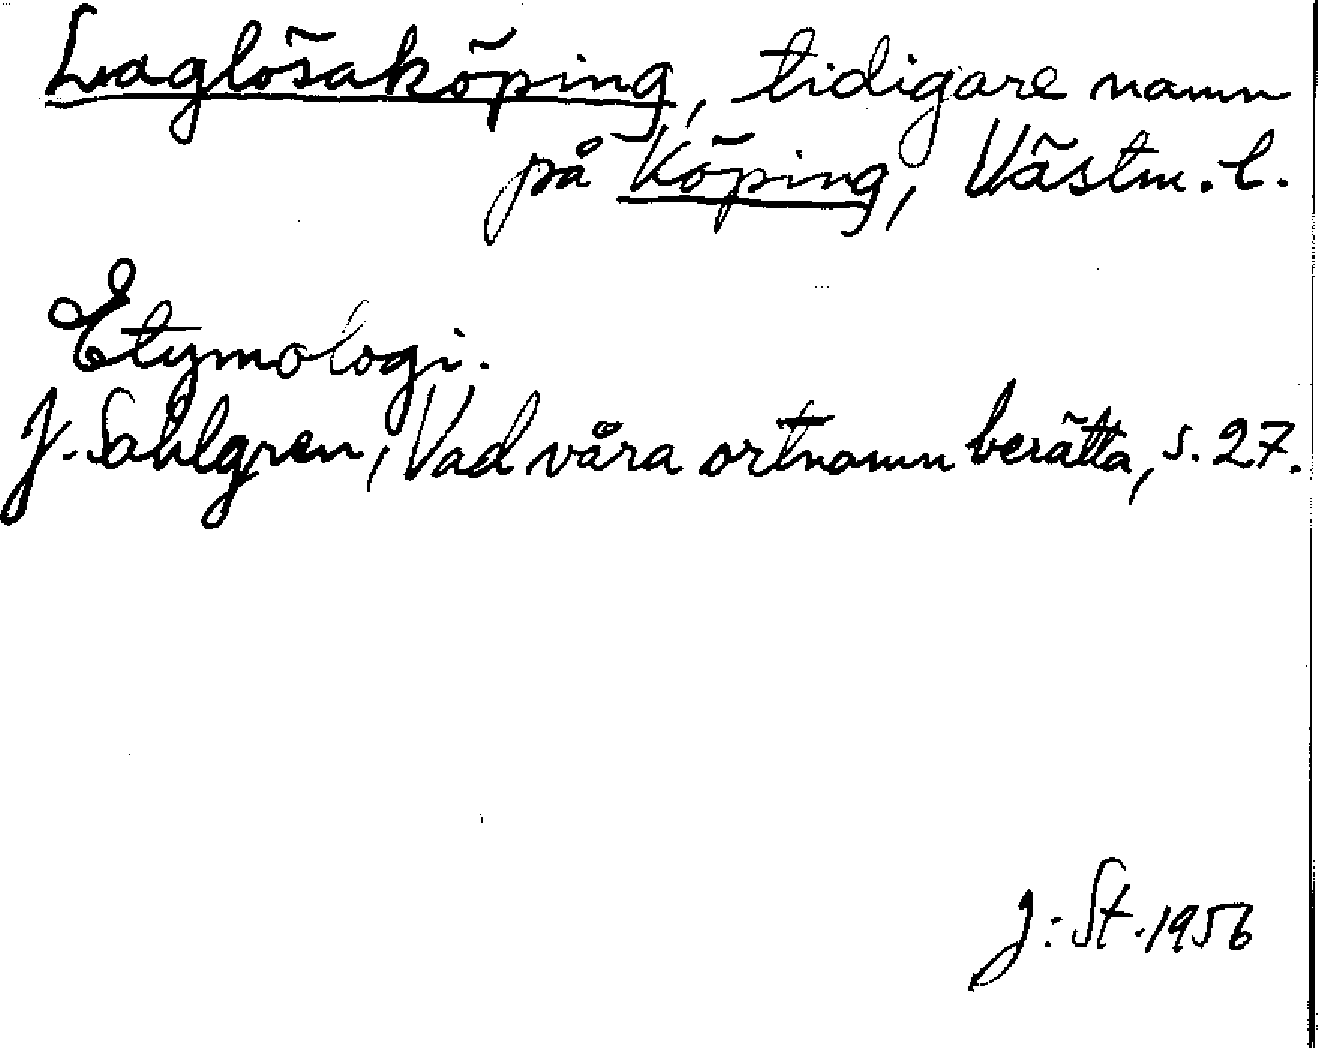 Laglösaköping, tidigare namn
på Köping, Västm. l.
Etymologi.
J. Sahlgren, Vad våra ortnamn berätta, s. 27.
J. St. 1956